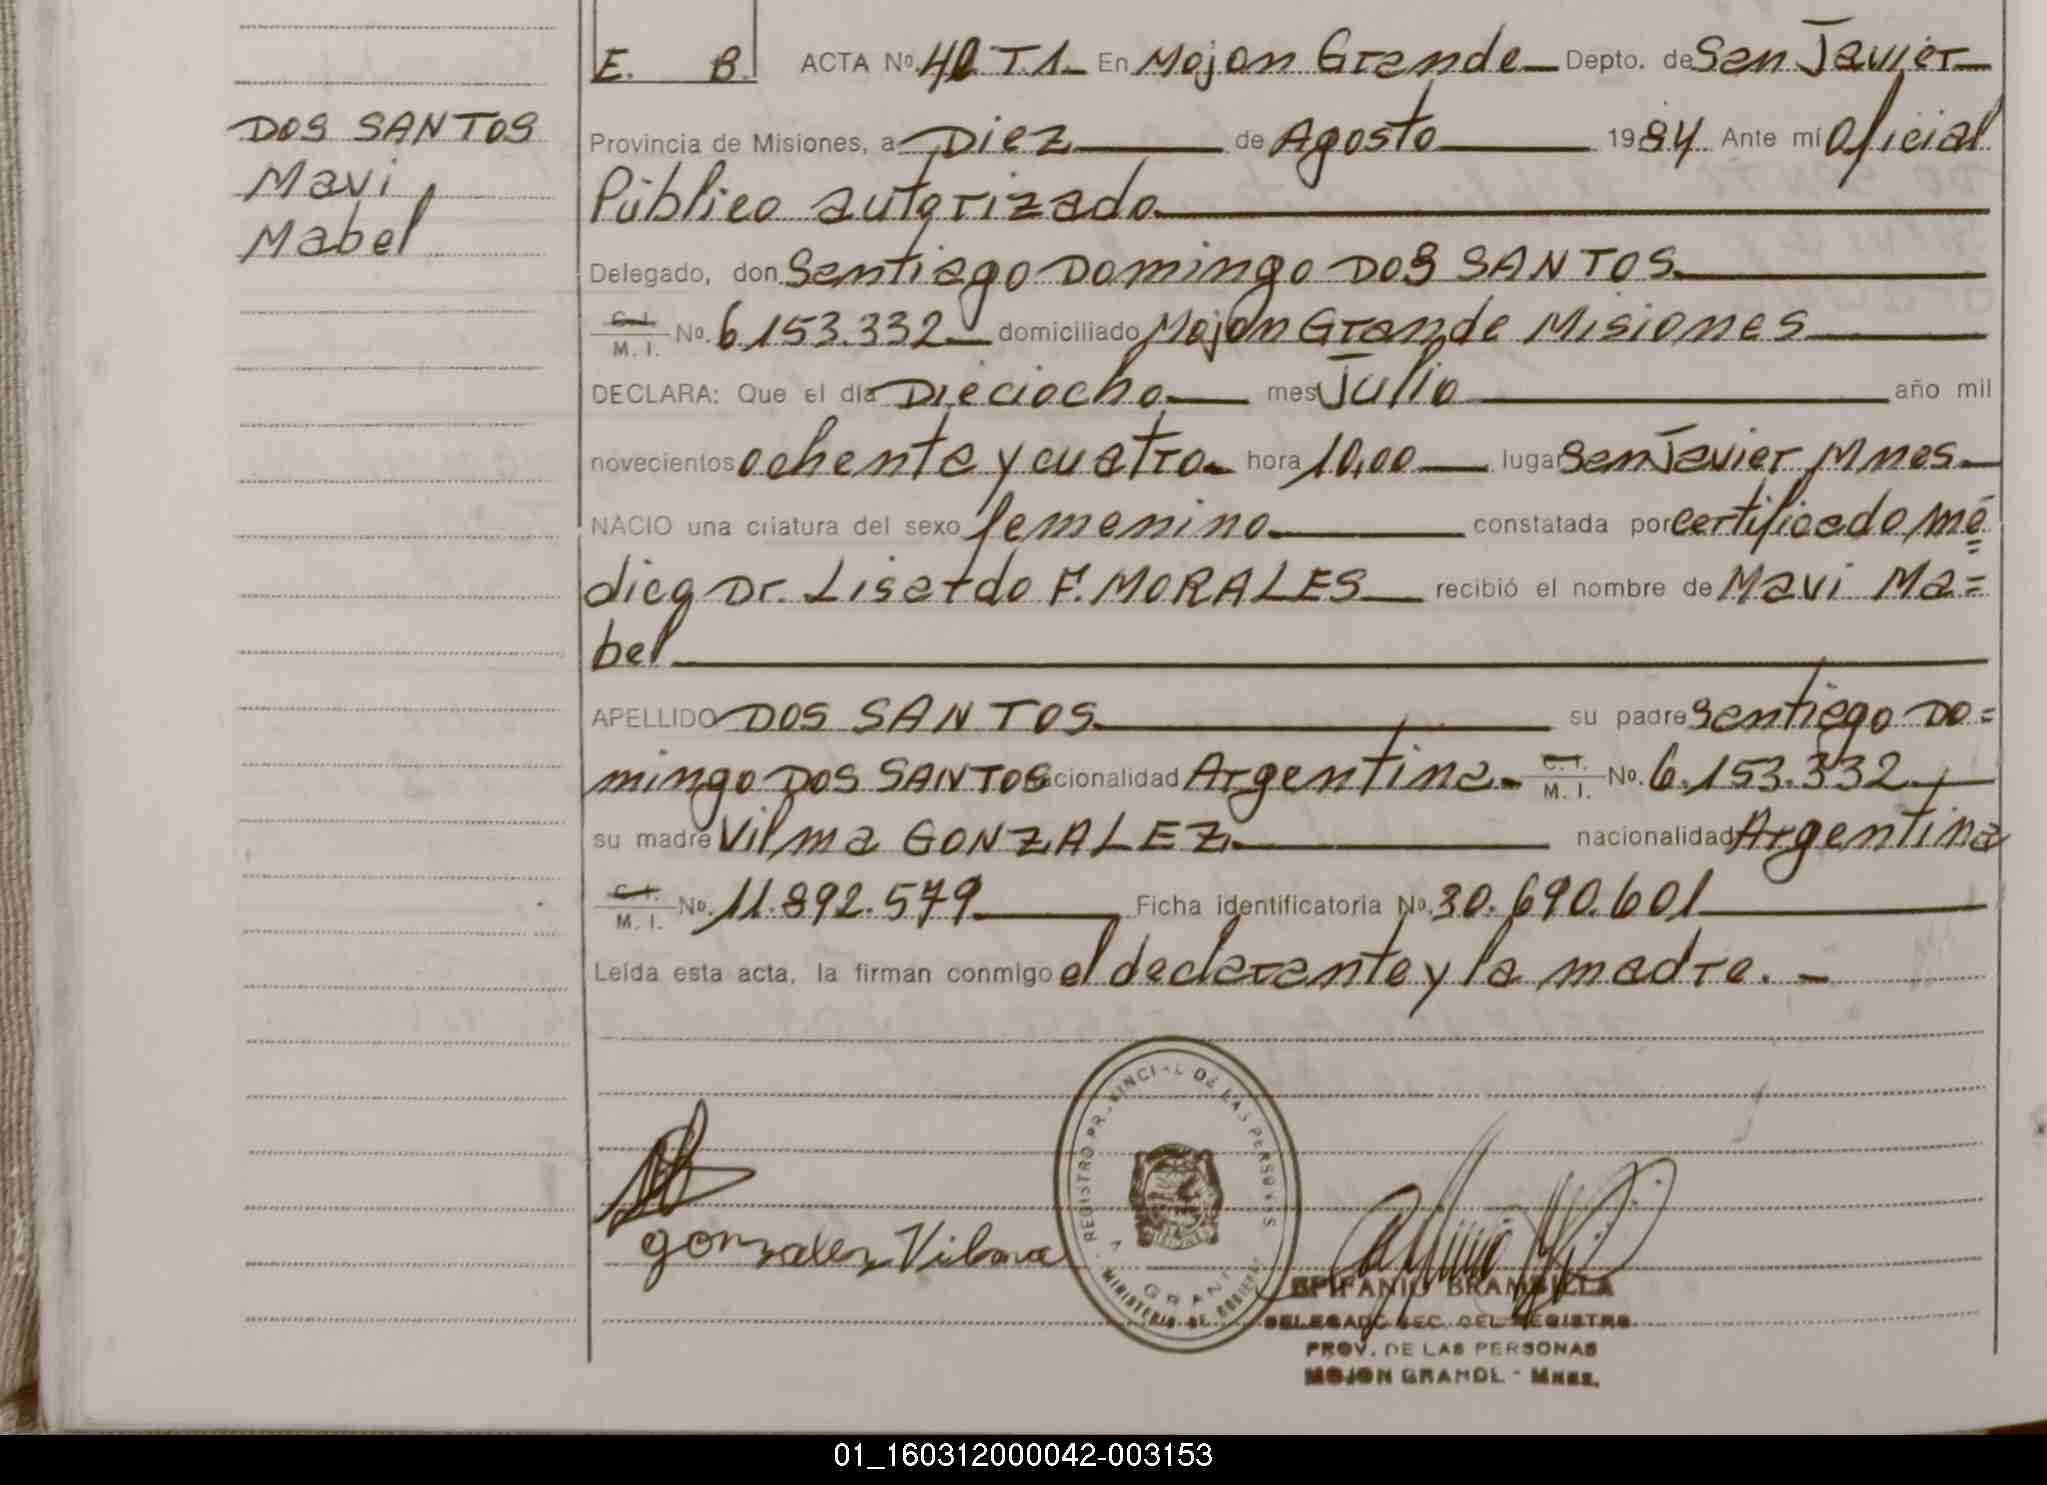 E. B. ACTA Nº. 40 T1. En Mojon Grande Depto. de San Javier
DOS SANTOS
Mavi
Mabel
Provincia de Misiones, a Diez de Agosto 1984 Ante mí Oficial
Público autorizado
Delegado, don Santiago Domingo DOS SANTOS
C. I. M. I. No. 6.153.332 domiciliado Mojon Grande Misiones
DECLARA: Que el día Dieciocho mes Julio año mil
novecientos ochenta y cuatro hora 10,00 lugar San Javier Mnes.
NACIO una criatura del sexo femenino constatada por certificado mé
dico Dr. Lisardo F. MORALES recibió el nombre de Mavi Ma=
bel
APELLIDO DOS SANTOS su padre Santiago Do=
mingo DOS SANTOS nacionalidad Argentina. C. I. M. I. No. 6.153.332
su madre Vilma GONZALEZ nacionalidad Argentina
C. I. M. I. No. 11.892.579 Ficha identificatoria No. 30.690.601
Leída esta acta, la firman conmigo el declarante y la madre. -
REGISTRO PROVINCIAL DE LAS PERSONAS
MINISTERIO DE GOBIERNO
gonzalez Vilma
EPIFANIO BRAMBILLA
DELEGADO SEC. DEL REGISTRO
PROV. DE LAS PERSONAS
MOJON GRANDE - Mnes.
01_160312000042-003153